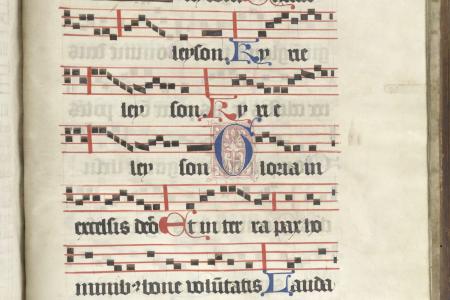 leyson. Ky rie
ley son Ky ri e
ley son Gloria in
excelsis deo Et in ter ra pax ho
minibꝰ bone volūtatis Lauda